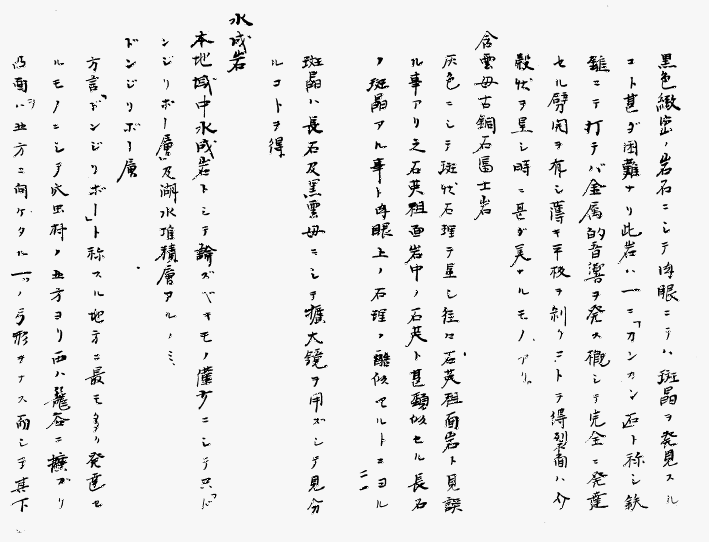 黒色緻密ノ岩石ニシテ肉眼ニテハ斑晶ヲ発見スル
コト甚ダ困難ナリ此岩ハ一ニ「カンカン石ト称シ鉄
鎚ニテ打テバ金属的音響ヲ発ス概シテ完全ニ発達
セル劈開ヲ有シ薄キ平板ヲ剝グコトヲ得裂面ハ介
殼状ヲ呈シ時ニ甚ダ美ナルモノアリ。
含雲母古銅石富士岩
灰色ニシテ斑状石理ヲ呈シ往々石英粗面岩ト見誤
ル事アリ之石英粗面岩中ノ石英ト甚酷似セル長石
ノ斑晶アル事ト肉眼上ノ石理ノ酷似セルトニヨル
斑晶ハ長石及黒雲母ニシテ擴大鏡ヲ用ズシテ見分
ルコトヲ得
水成岩
本地域中水成岩トシテ論ズベキモノ僅少ニシテ只「ド
ンジリボー層」及湖水堆積層アルノミ
ドンジリボー層
方言「ドンジリボー」ト称スル地方ニ最モ多ク発達セ
ルモノニシテ 北方ヨリ西ハ龍谷ニ擴ガリ
凸面ヲハ北方ニ向ケタル一ツノ弓形ヲナス而シテ其下